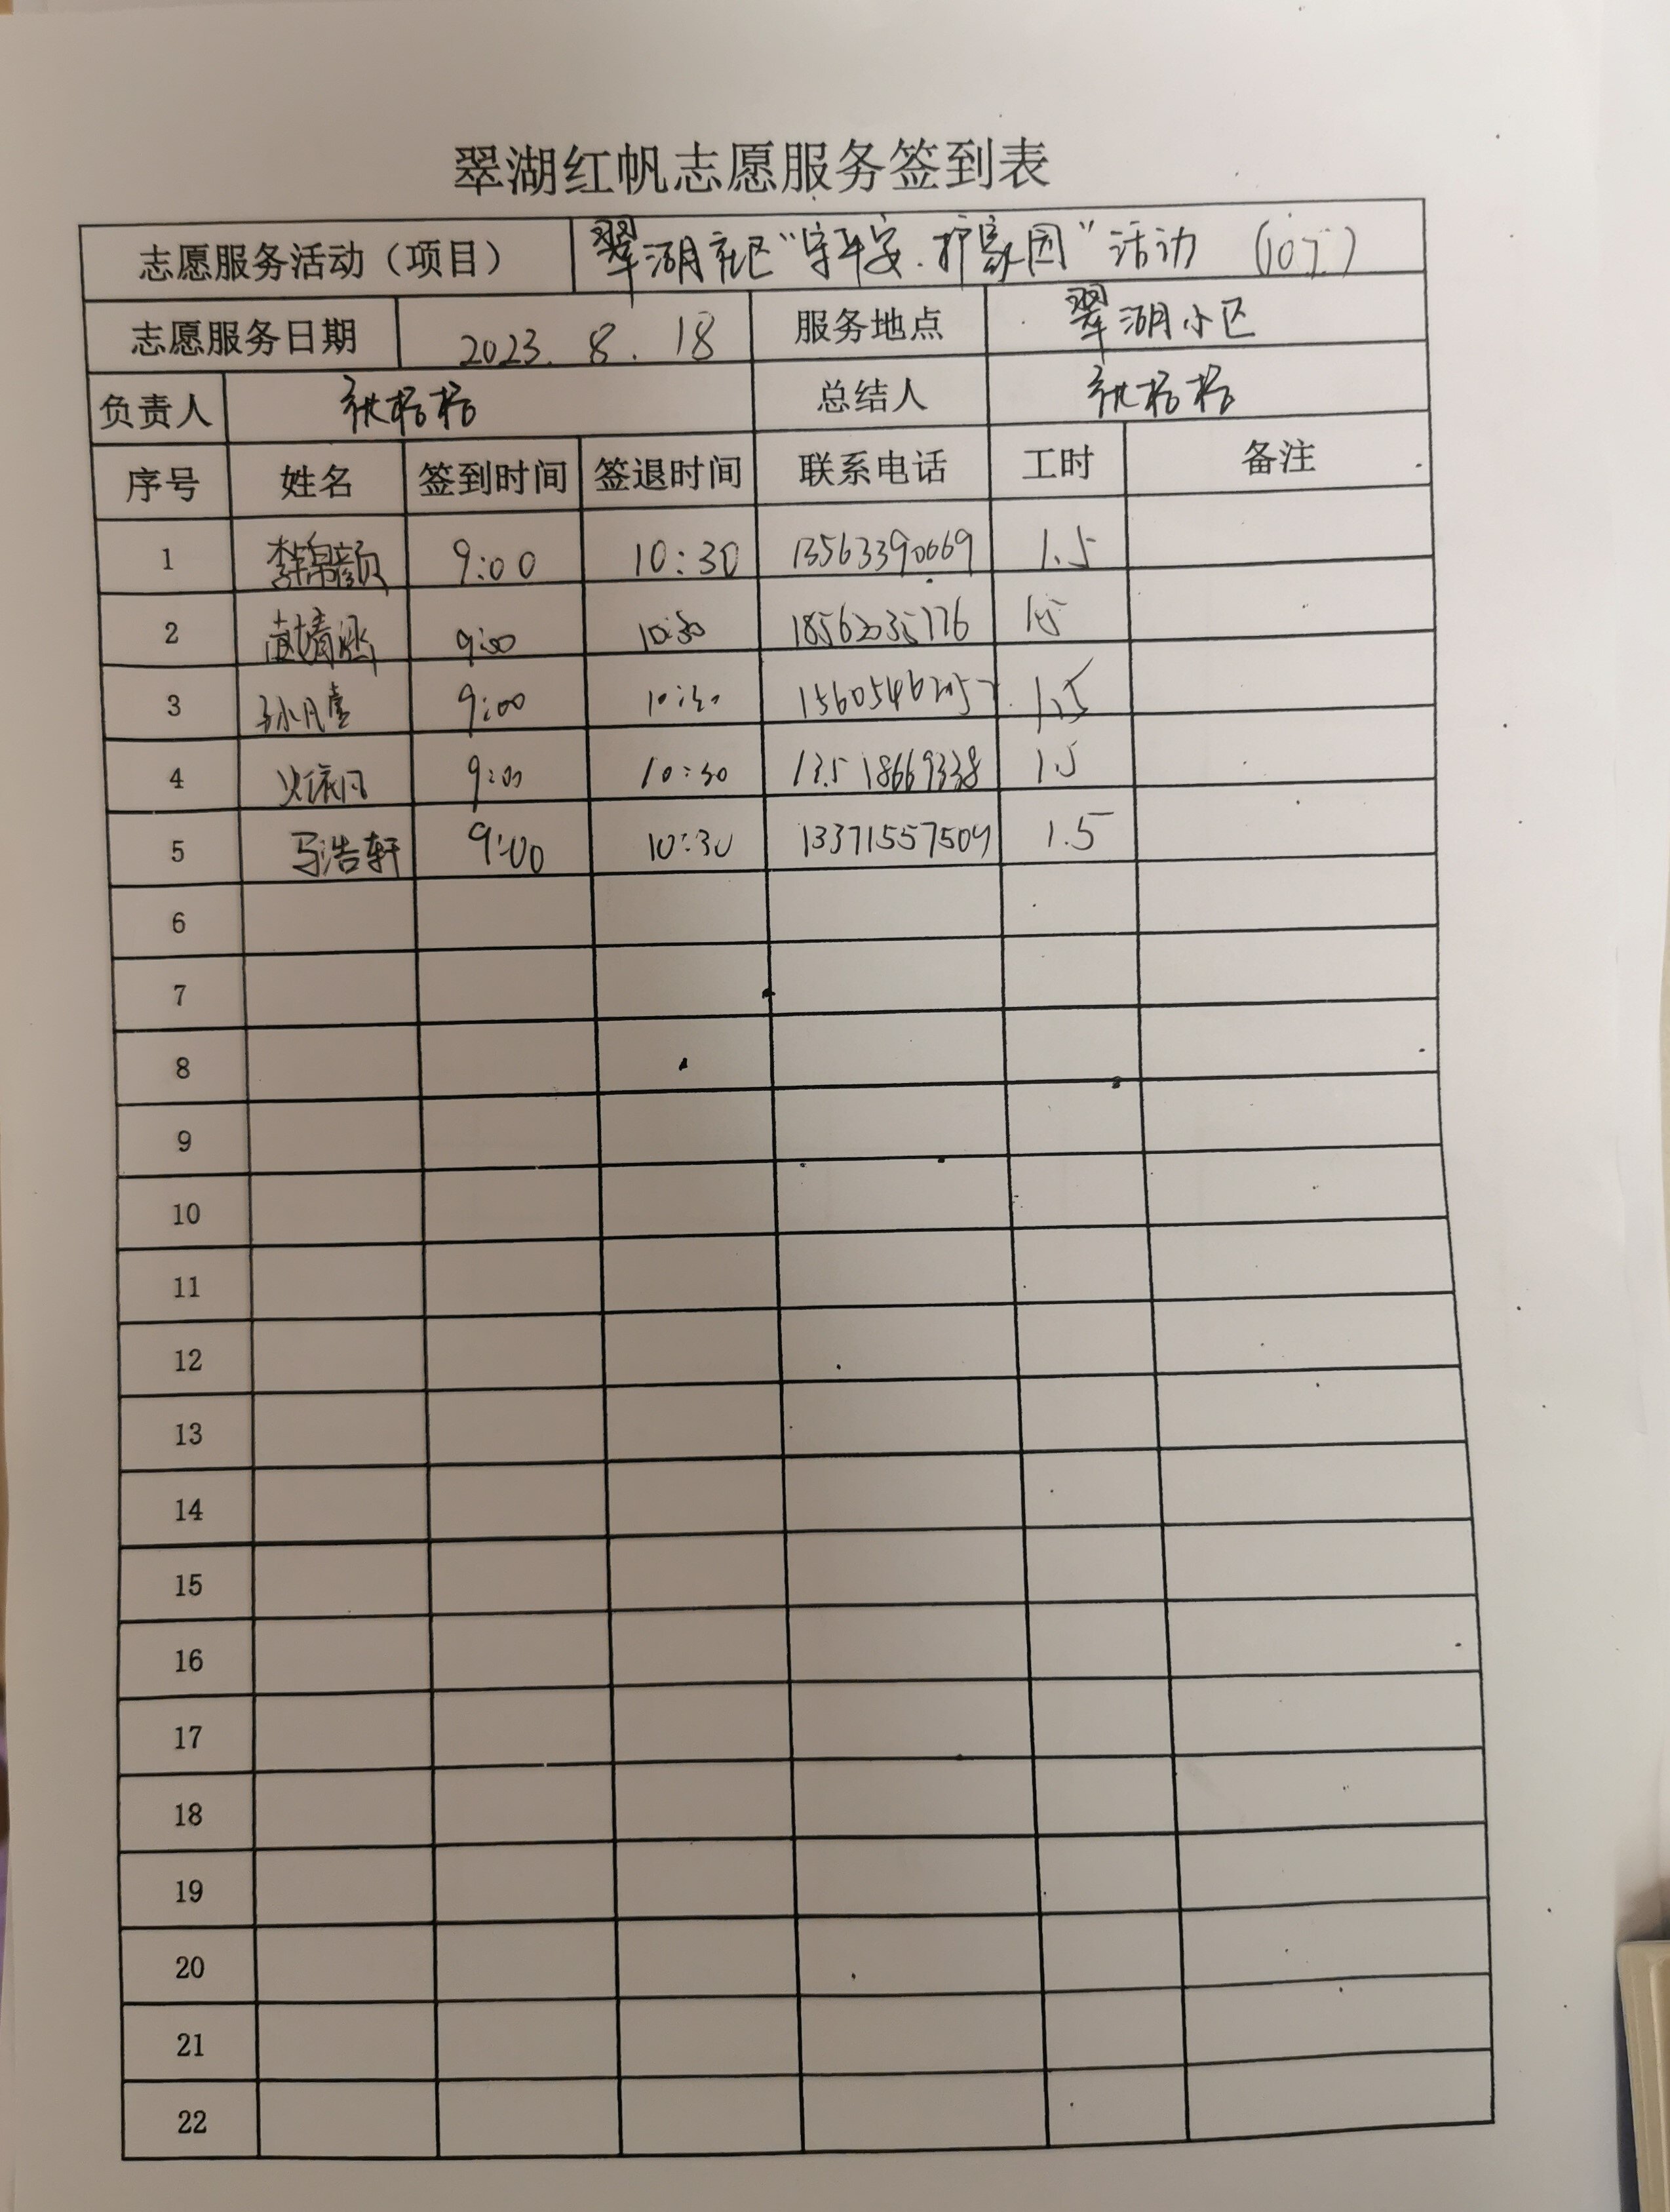 翠湖红帆志愿服务签到表
志愿服务活动（项目） 翠湖社区“守平安.护家园”活动
志愿服务日期 2023.8.18 服务地点 翠湖小区
负责人 总结人
序号 姓名 签到时间 签退时间 联系电话 工时 备注
1 李锦颜 9:00 10:30 13563390669 1.5
2 9:00 10:30 18562035776 1.5
3 9:00 10:30 1.5
4 9:00 10:30 13518669338 1.5
5 马浩轩 9:00 10:30 13371557509 1.5
6
7
8
9
10
11
12
13
14
15
16
17
18
19
20
21
22